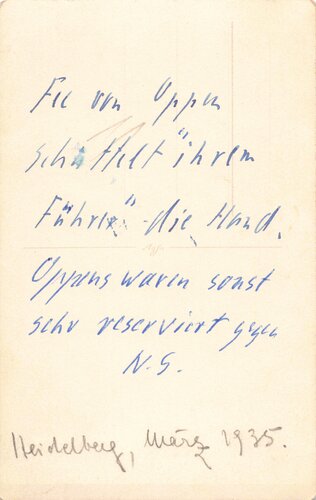 Fee von Oppen
schüttelt "ihrem
Führer" die Hand.
Oppens waren sonst
sehr reserviert gegen
N.S.
Heidelberg, März 1935.